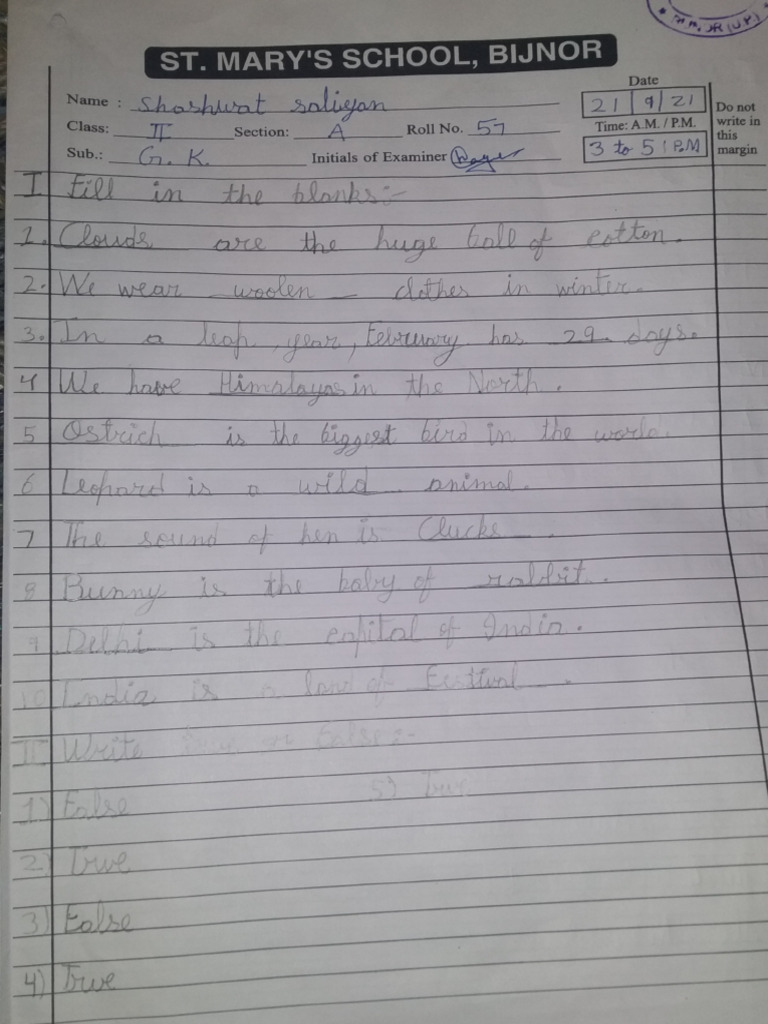 BIJNOR (U.P.)
ST. MARY'S SCHOOL, BIJNOR
Date
Name : Shashwat saliyan 21 9 21
Class: II Section: A Roll No. 57 Time: A.M. / P.M.
Sub.: G. K. Initials of Examiner 3 to 5 P.M
Do not
write in
this
margin
I Fill in the blanks:-
1. Clouds are the huge ball of cotton.
2. We wear woolen clothes in winter.
3. In a leap year, February has 29 days.
4 We have Himalayas in the North.
5 Ostrich is the biggest bird in the world.
6 Leopard is a wild animal.
7 The sound of hen is Clucks.
8 Bunny is the baby of rabbit.
9 Delhi is the capital of India.
10 India is a land of Festival.
II Write true or false:-
1) False 5) True
2) True
3) False
4) True